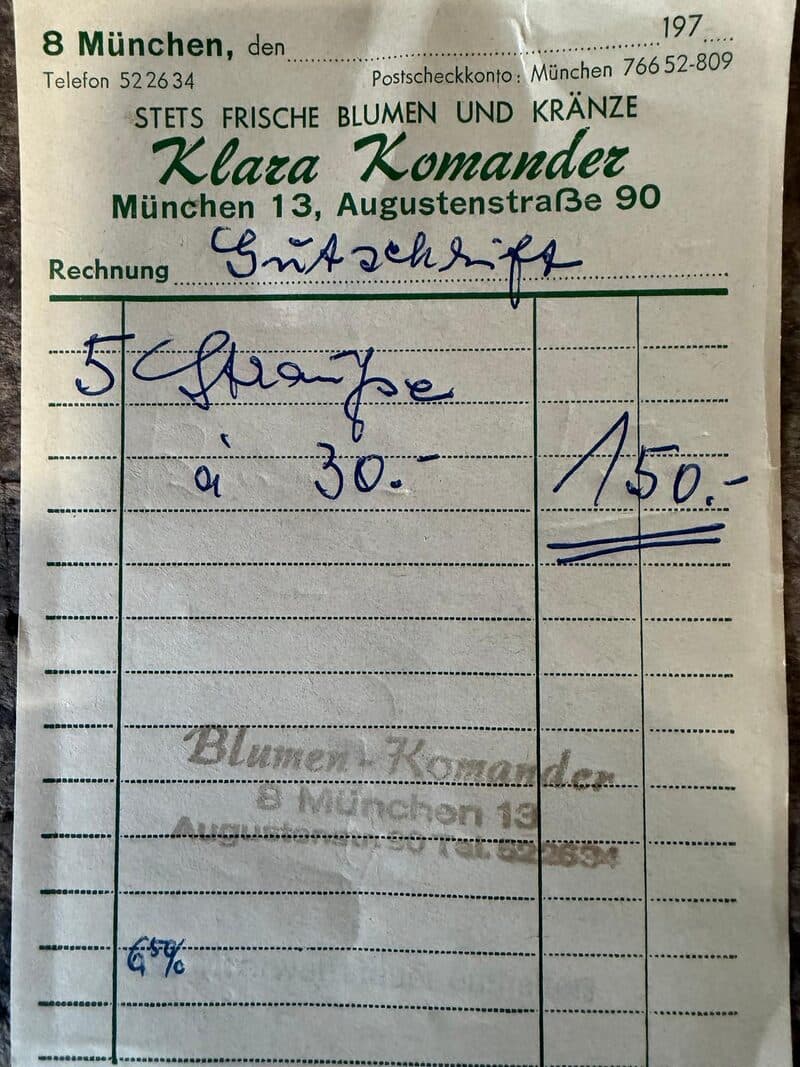 8 München, den 197
Telefon 522634 Postscheckkonto: München 76652-809
STETS FRISCHE BLUMEN UND KRÄNZE
Klara Komander
München 13, Augustenstraße 90
Rechnung Gutschrift
5 Strauße
à 30.- 150.-
Blumen-Komander
8 München 13
Augustenstr. 90 Tel. 522634